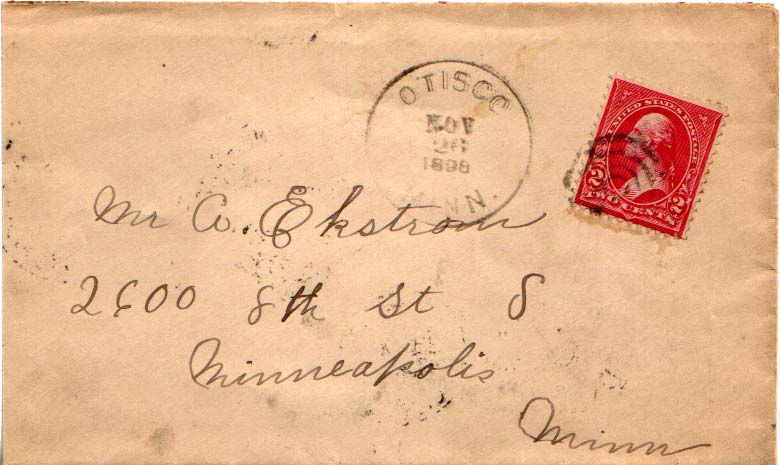 OTISCO
NOV
26
1898
MINN.
UNITED STATES POSTAGE
2 2
TWO CENTS
Mr A. Ekstrom
2600 8th St S
Minneapolis
Minn